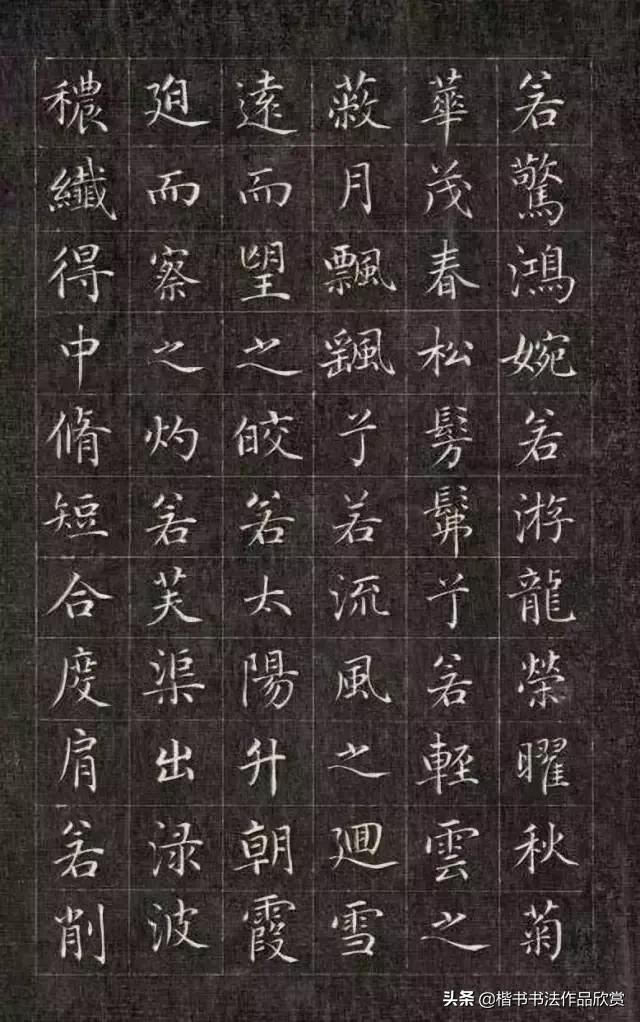 若驚鴻婉若游龍榮曜秋菊
華茂春松髣髴兮若輕雲之
蔽月飄颻兮若流風之迴雪
遠而望之皎若太陽升朝霞
迫而察之灼若芙渠出渌波
穠纖得中脩短合度肩若削
头条 @楷书书法作品欣赏